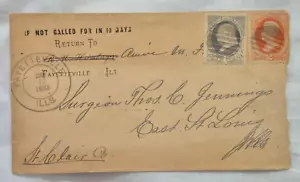 IF NOT CALLED FOR IN 10 DAYS
RETURN TO
FAYETTEVILLE ILL
FAYETTEVILLE
ILLS
Surgeon Thos. C. Jennings
East St. Louis
Ills
St. Clair Co.